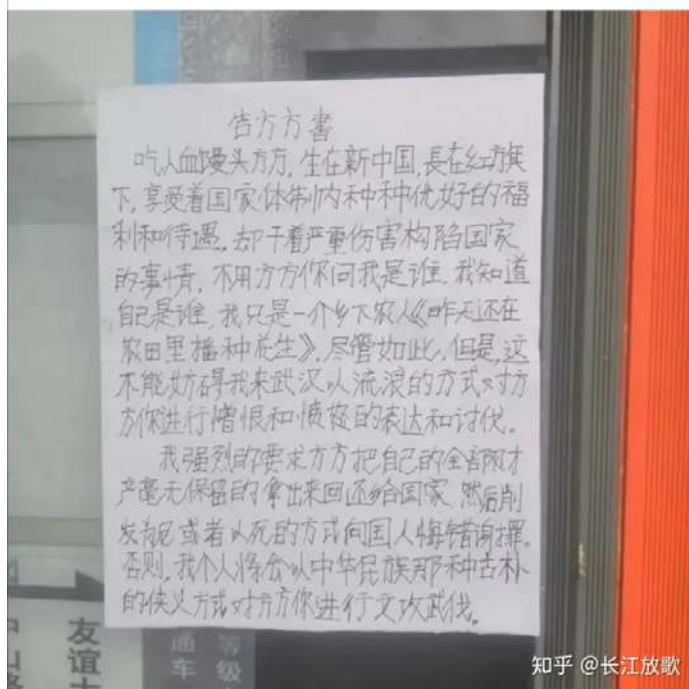 告方方書
吃人血馒头方方，生在新中国，長在红旗
下，享受着国家体制内种种优好的福
利和待遇。却干着严重伤害构陷国家
的事情，不用方方你问我是谁，我知道
自己是谁，我只是一个乡下农人《昨天还在
农田里播种花生》，尽管如此，但是，这
不能妨碍我来武汉以流浪的方式对方
方你进行憎恨和愤怒的表达和讨伐。
我强烈的要求方方把自己的全部财
产毫无保留的拿出来回还给国家，然后削
发为尼或者以死的方式向国人悔错谢罪。
否则，我个人将会以中华民族那种古朴
的侠义方式对方方你进行文攻武伐。
友谊
通车
等级
知乎 @长江放歌